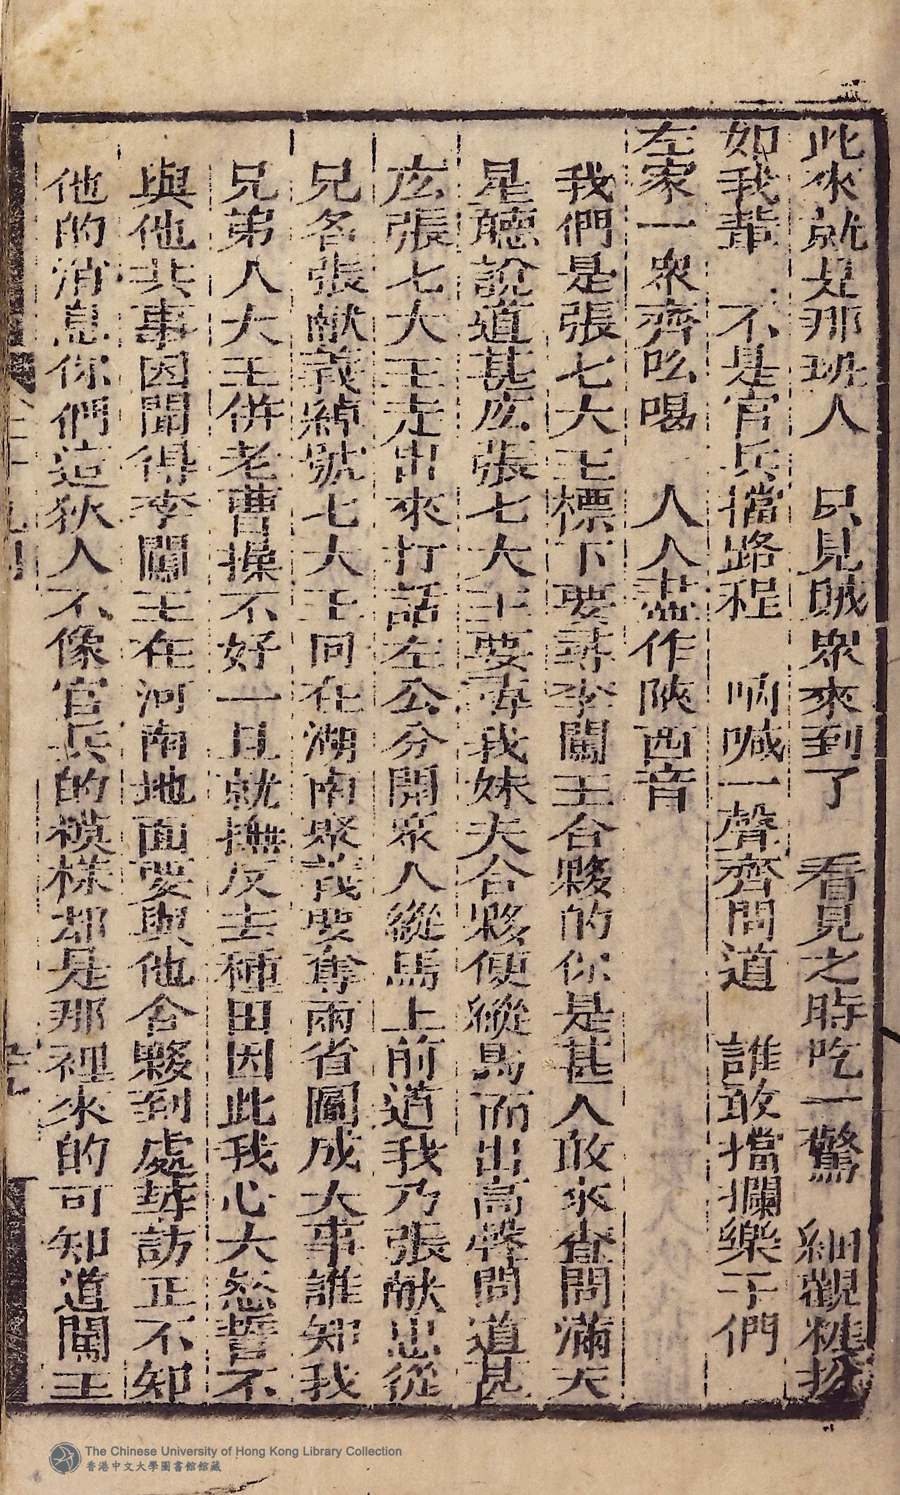 此來就是那班人　只見賊衆來到了　看見之時吃一驚　細觀粧扮
如我輩　不是官兵擋路程　吶喊一聲齊問道　誰敢擋攔樂子們
左家一衆齊吆喝　人人盡作陝西音
我們是張七大王標下要尋李闖王合夥的你是甚人敢來查問滿天
星聽說道甚庅張七大王要尋我妹夫合夥便縱馬而出高聲問道甚
庅張七大王走出來打話左公分開衆人從馬上前道我乃張献忠從
兄名張献義綽號七大王同在湖南聚義要奪兩省圖成大事誰知我
兄弟八大王併老曹操不好一旦就撫反去種田因此我心大怒誓不
與他共事因聞得李闖王在河南地面要與他合夥到處尋訪正不知
他的消息你們這狄人不像官兵的模樣却是那裡來的可知道闖王